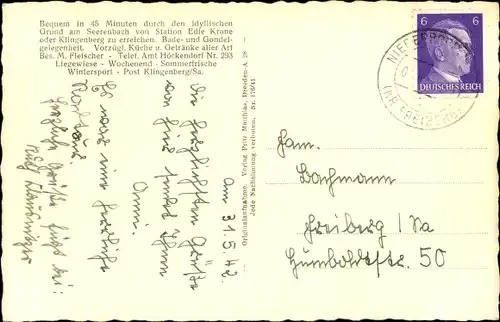 Bequem in 45 Minuten durch den idyllischen
Grund am Seerenbach von Station Edle Krone
oder Klingenberg zu erreichen. Bade- und Gondel-
gelegenheit. Vorzügl. Küche u. Getränke aller Art
Bes. M. Fleischer - Telef. Amt Höckendorf Nr. 293
Liegewiese - Wochenend - Sommerfrische
Wintersport - Post Klingenberg/Sa.
Originalaufnahme. Verlag Fritz Matthias, Dresden-A. 28
Jede Nachahmung verboten. Nr. 176/41
6 6
DEUTSCHES REICH
Am 31.5.42.
Die herzlichsten Grüße
von hier sendet Ihnen
Anni.
Es war eine herrliche
Herzliche Grüße fügt bei:
Fam.
Bachmann
Freiberg / Sa
Humboldtstr. 50